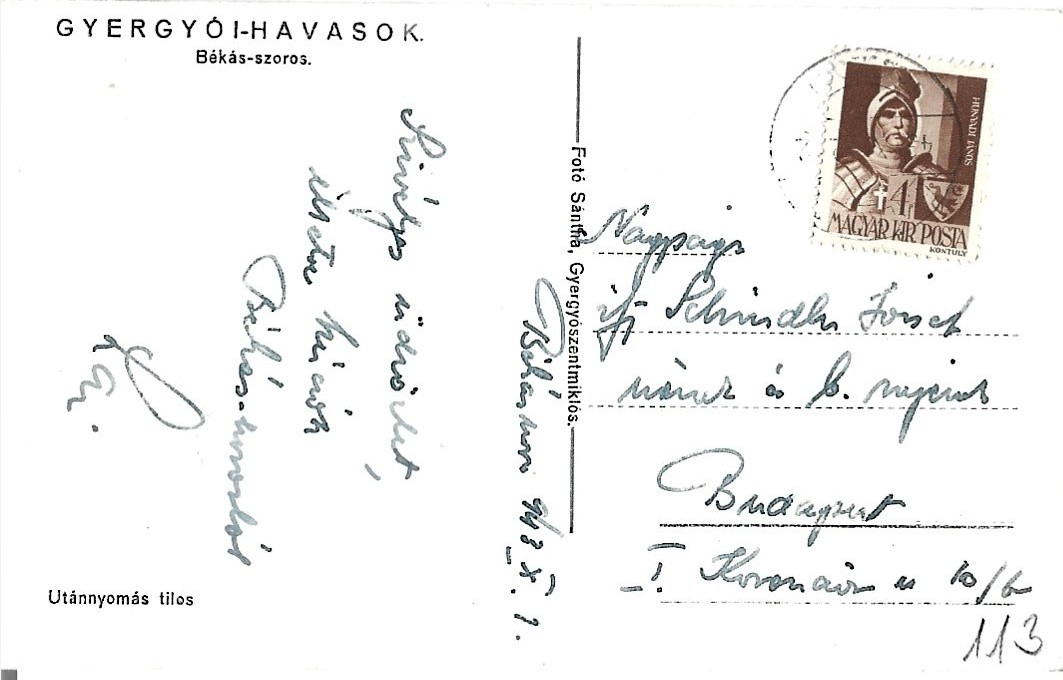 GYERGYÓI-HAVASOK.
Békás-szoros.
Szívélyes üdvözlet,
illetve kívánok
Békás-szorosból
Békásszoros 943. X. 1.
Fotó Sántha, Gyergyószentmiklós.
HUNYADI JÁNOS
4f
MAGYAR KIR. POSTA
KONTULY
Nagys
ifj Schindler József
úrnak és b. nejének
Budapest
I. Koronaőr u 10/b
113
Utánnyomás tilos